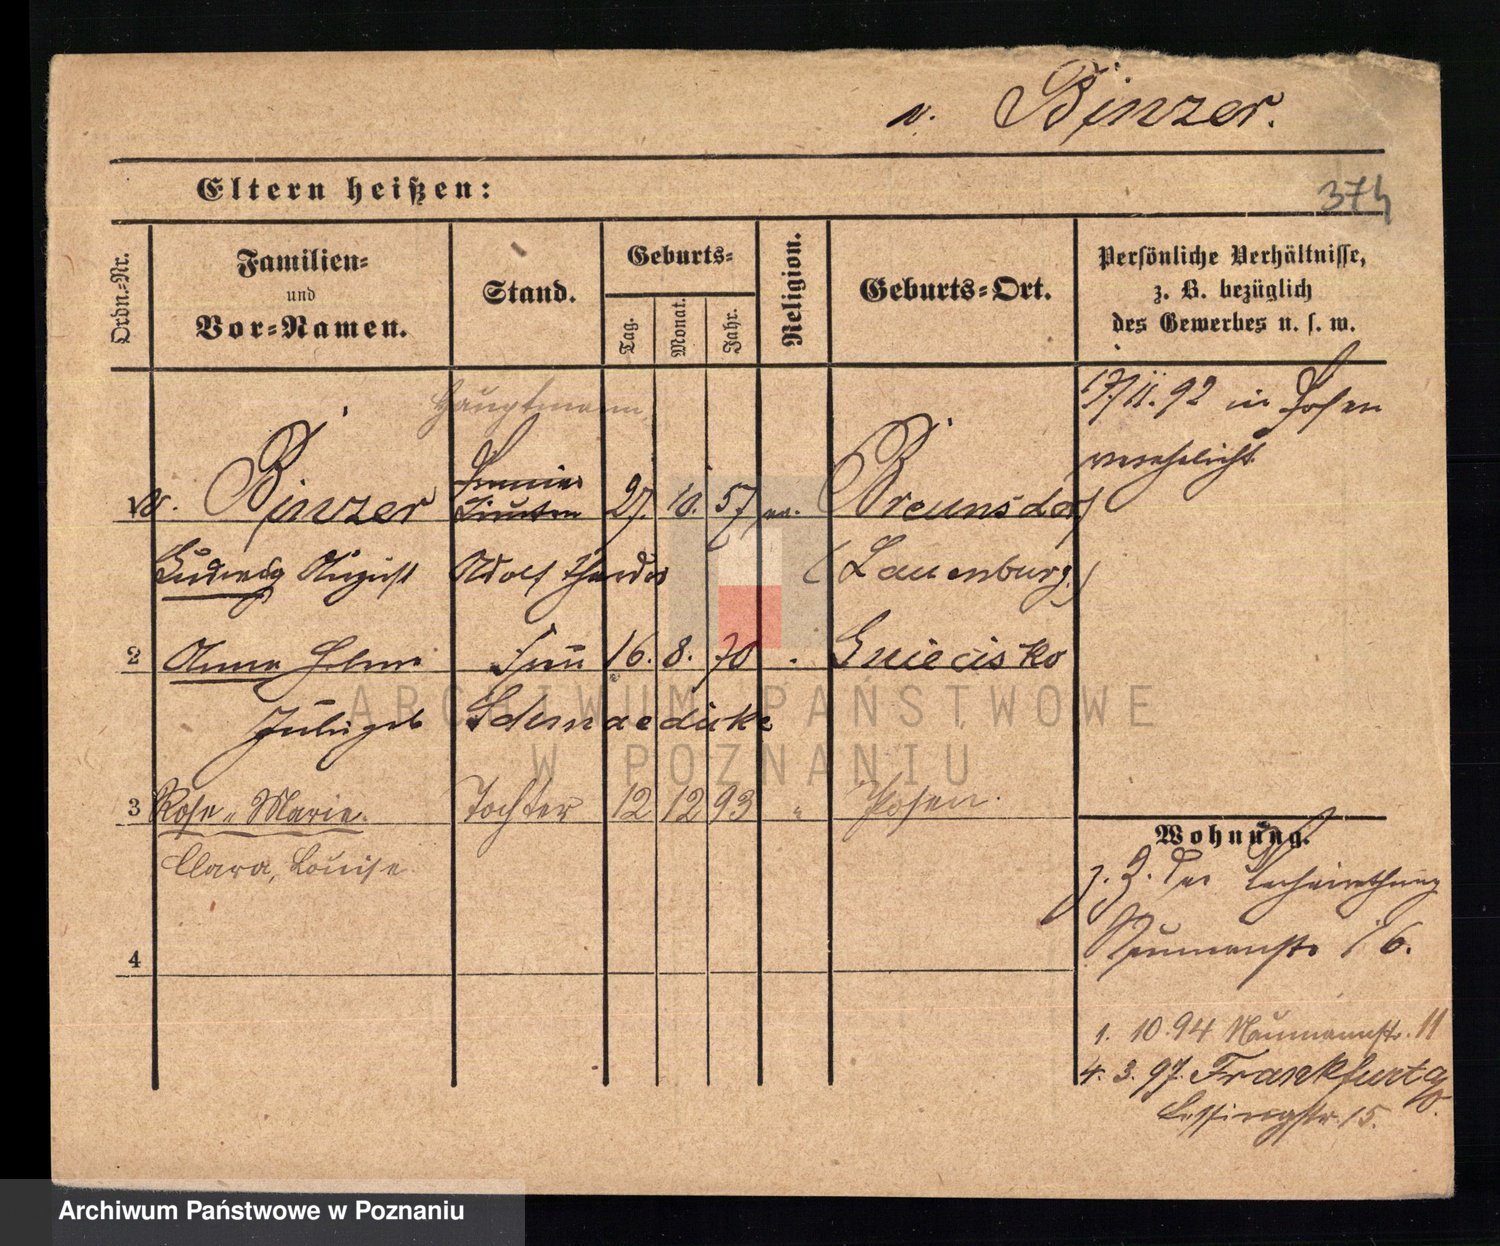 v. Binzer.
Eltern heißen:
374
Ordn.-Nr.
Familien-
und
Vor-Namen.
Stand.
Geburts-
Tag.
Monat.
Jahr.
Religion.
Geburts-Ort.
Persönliche Verhältnisse,
z. B. bezüglich
des Gewerbes u. s. w.
Hauptmann
17/11. 92 in Posen
verehelicht
v. Binzer Premier 27. 10. 57 ev.
Lieuten
Ludwig August Adolf (Lauenburg.)
2 Anna Frau 16. 8. 70
geb Schmaedicke
3 Rose-Marie Tochter 12 12 93 " Posen.
Clara, Louise
4
Wohnung.
z. Z. der
Naumannstr 16.
1. 10. 94 Naumannstr. 11
4. 3. 97. Frankfurt a/O.
Lessingstr. 15.
ARCHIWUM PAŃSTWOWE
W POZNANIU
Archiwum Państwowe w Poznaniu